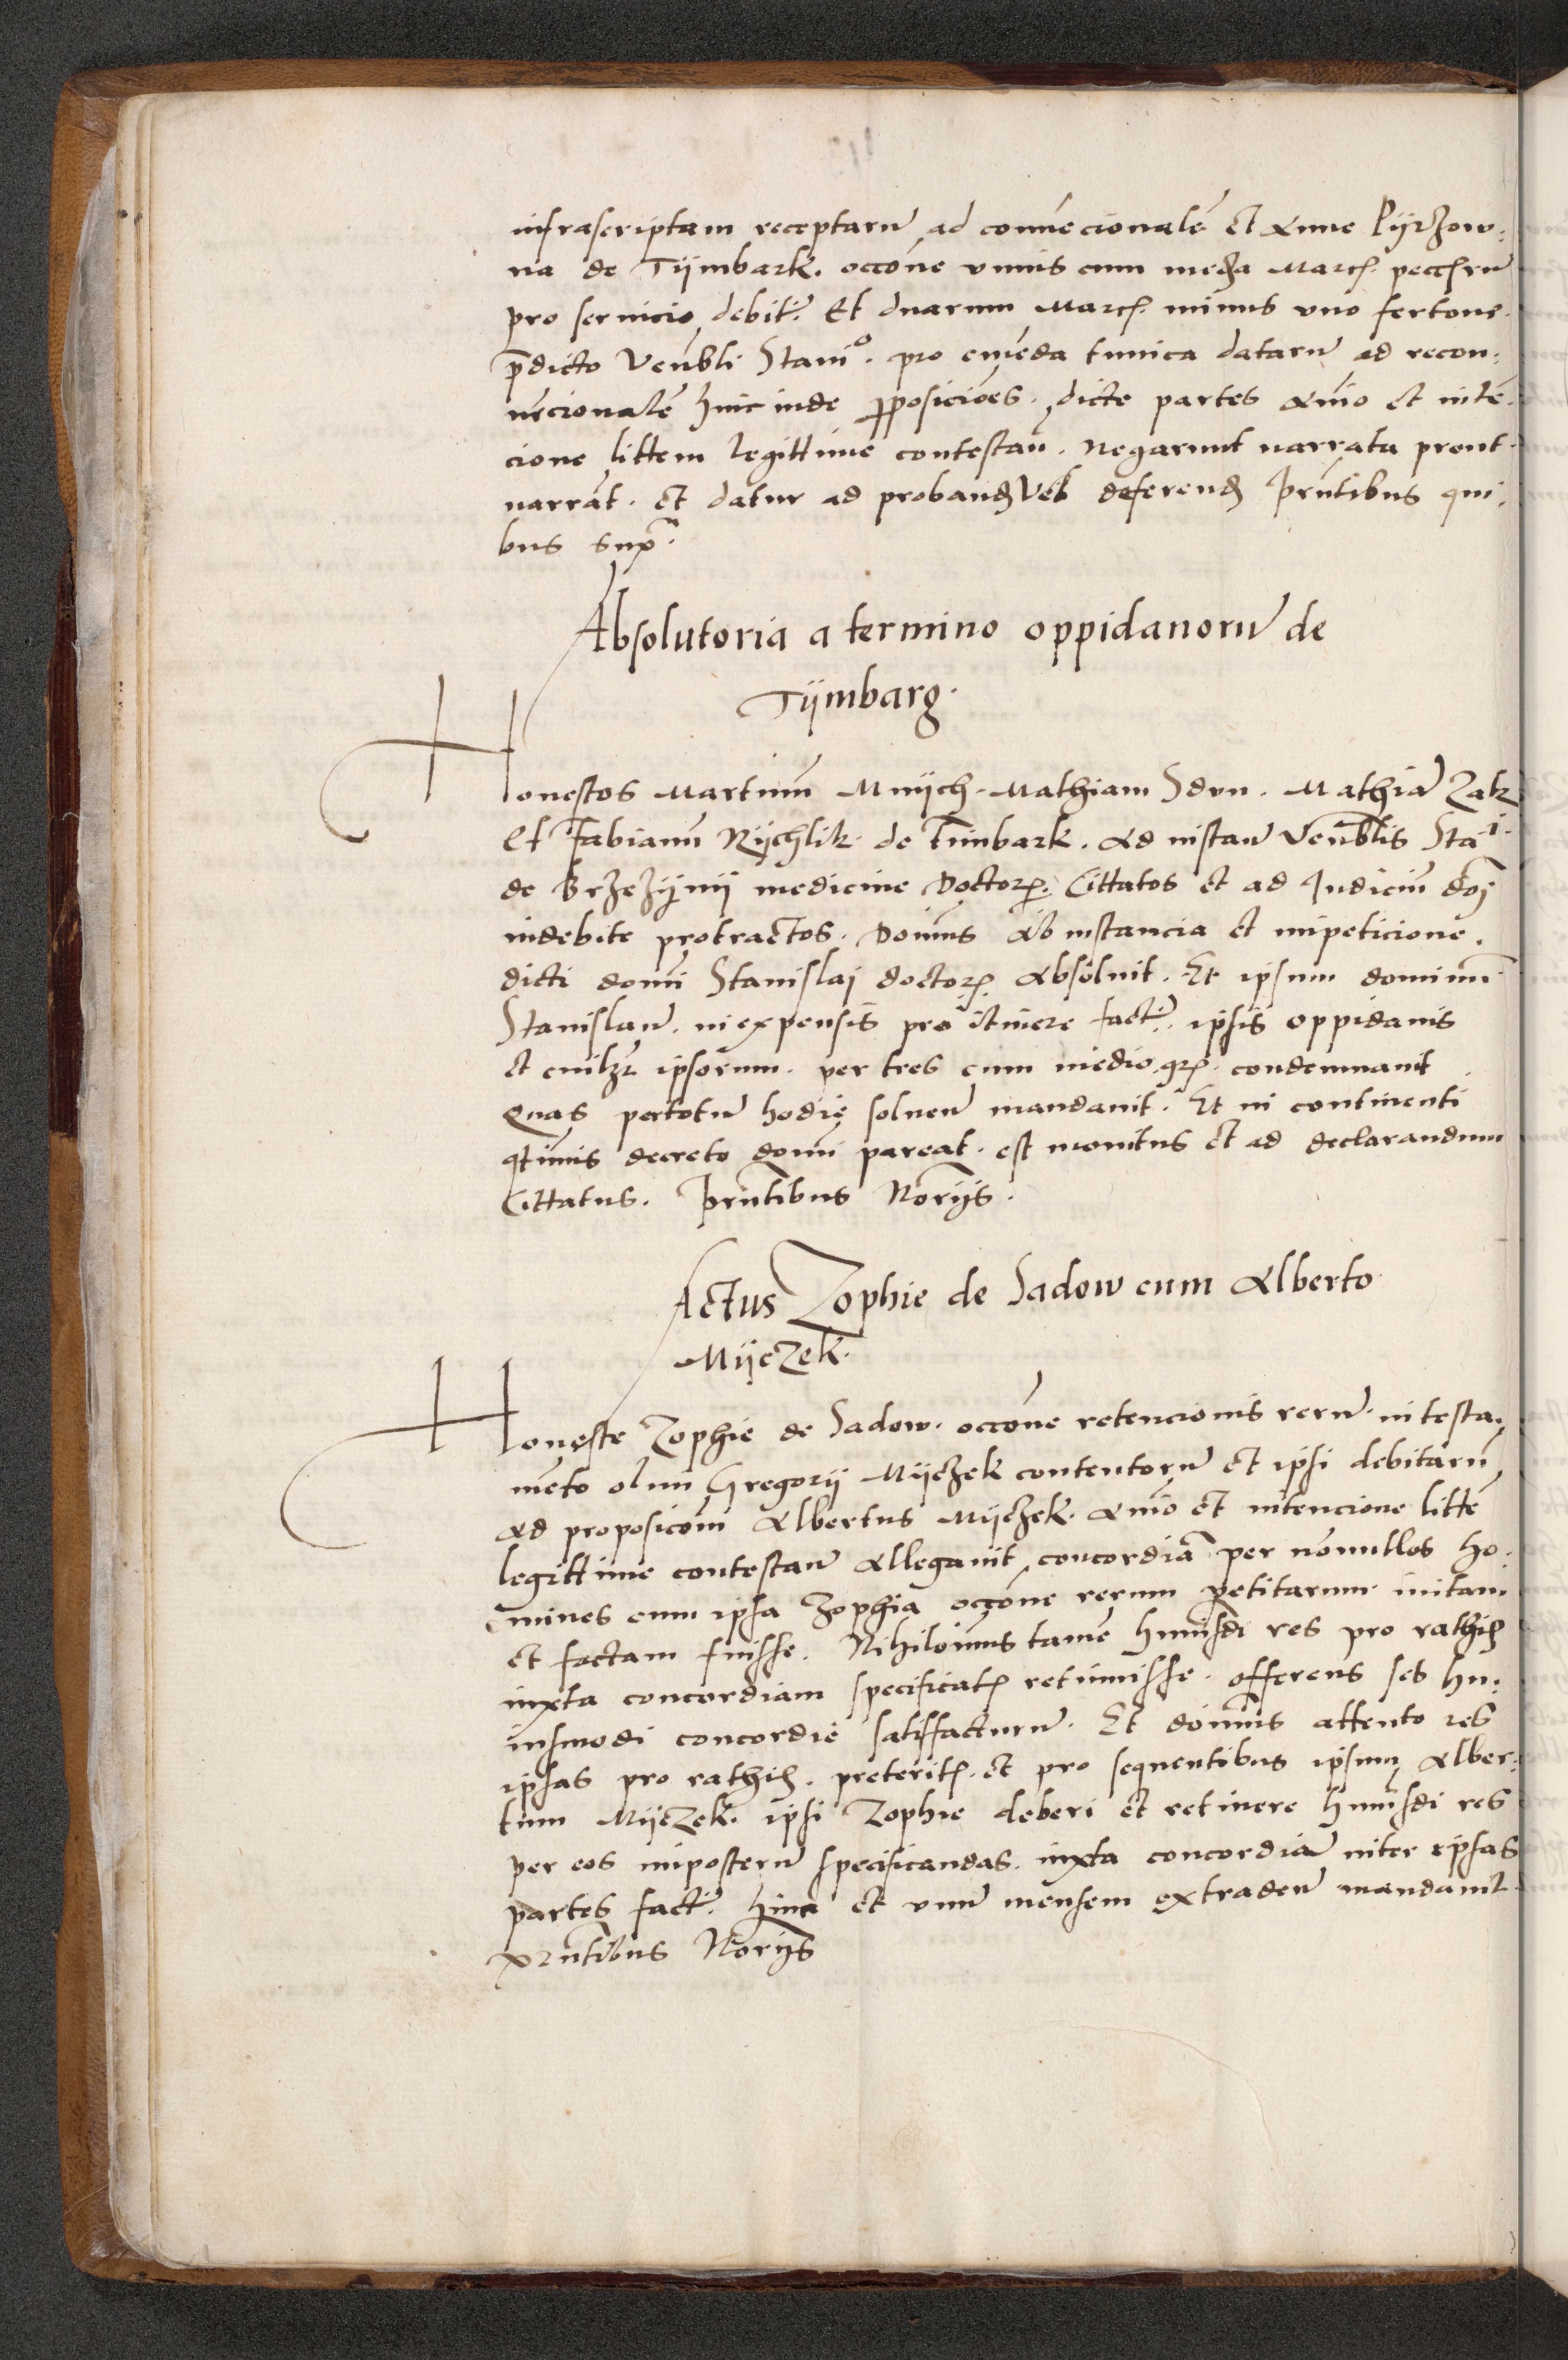 infrascriptam receptarū ad conuēcionalē et Anne Pyrzow⸗
na de Tÿmbark. occōne vnius cum media Marcꝭ peccꝭrū
pro seruicio debitꝭ. Et duarum Marcꝭ minus vno fertone.
p̄dicto Venbli Stanio. pro emēda tunica datarū ad recon⸗
uēcionalē hincinde ꝓposiciōes. dicte partes Anīo et intē⸗
cione littem legittime contestan̄. Negarunt narrata prout
narrāt. Et datur ad probandꝭ vel deferendꝭ p̄rntibus qui⸗
bus supᵃ.
Absolutoria a termino oppidanorū de
Tÿmbarg.
Honestos Martinū Mnÿch. Mathiam Sdrn. Mathiā Zak
Et Fabianū Rÿchlik de Timbark. Ad instan̄ venblis Stai
de Brzezÿnÿ medicine Doctorꝭ. Cittatos et ad Iudiciū doꝭ
indebite protractos. Domīus Ab instancia et impeticione
dicti domī Stanislaj doctorꝭ Absoluit. Et ipsum dominū
Stanislaū. in expensis pro itinere factꝭ. ipsis oppidanis
et cuilꝫ ipsorum. per tres cum medio grꝭ. condemnauit
Quas pertotū hodie soluen̄ mandauit. Et in continenti
qtinus decreto domī pareat. est monitus et ad declarandum
Cittatus. p̄rntibus Norijs.
Actus Zophie de Sadow cum Alberto
Mÿczek.
Honeste Zophie de Sadow. occōne retencionis rerū. in testa⸗
mēto olim Gregorÿ Mÿczek contentorū et ipsi debitarū
Ad proposicōm Albertus Mÿczek. Anīo et intencione littē
legittime contestan̄ Allegauit concordiā per nōnullos ho⸗
mines cum ipsa Zophia occōne rerum petitarum initam
et factam fuisse. Nihilomīus tamē huiusdi res pro rathis
iuxta concordiam specificatꝭ retinuisse. offerens ses hu⸗
iusmodi concordie satisfacturū. Et domīus attento res
ipsas pro rathis. preteritꝭ. et pro sequentibus ipsum Alber⸗
tum Mÿczek. ipsi Zophie deberi et retinere huiusdi res
per eos imposterū specificandas. iuxta concordiā inter ipsas
partes factꝭ. hinc et vnū mensem extraden̄ mandauit
p̄rntibus Norijs